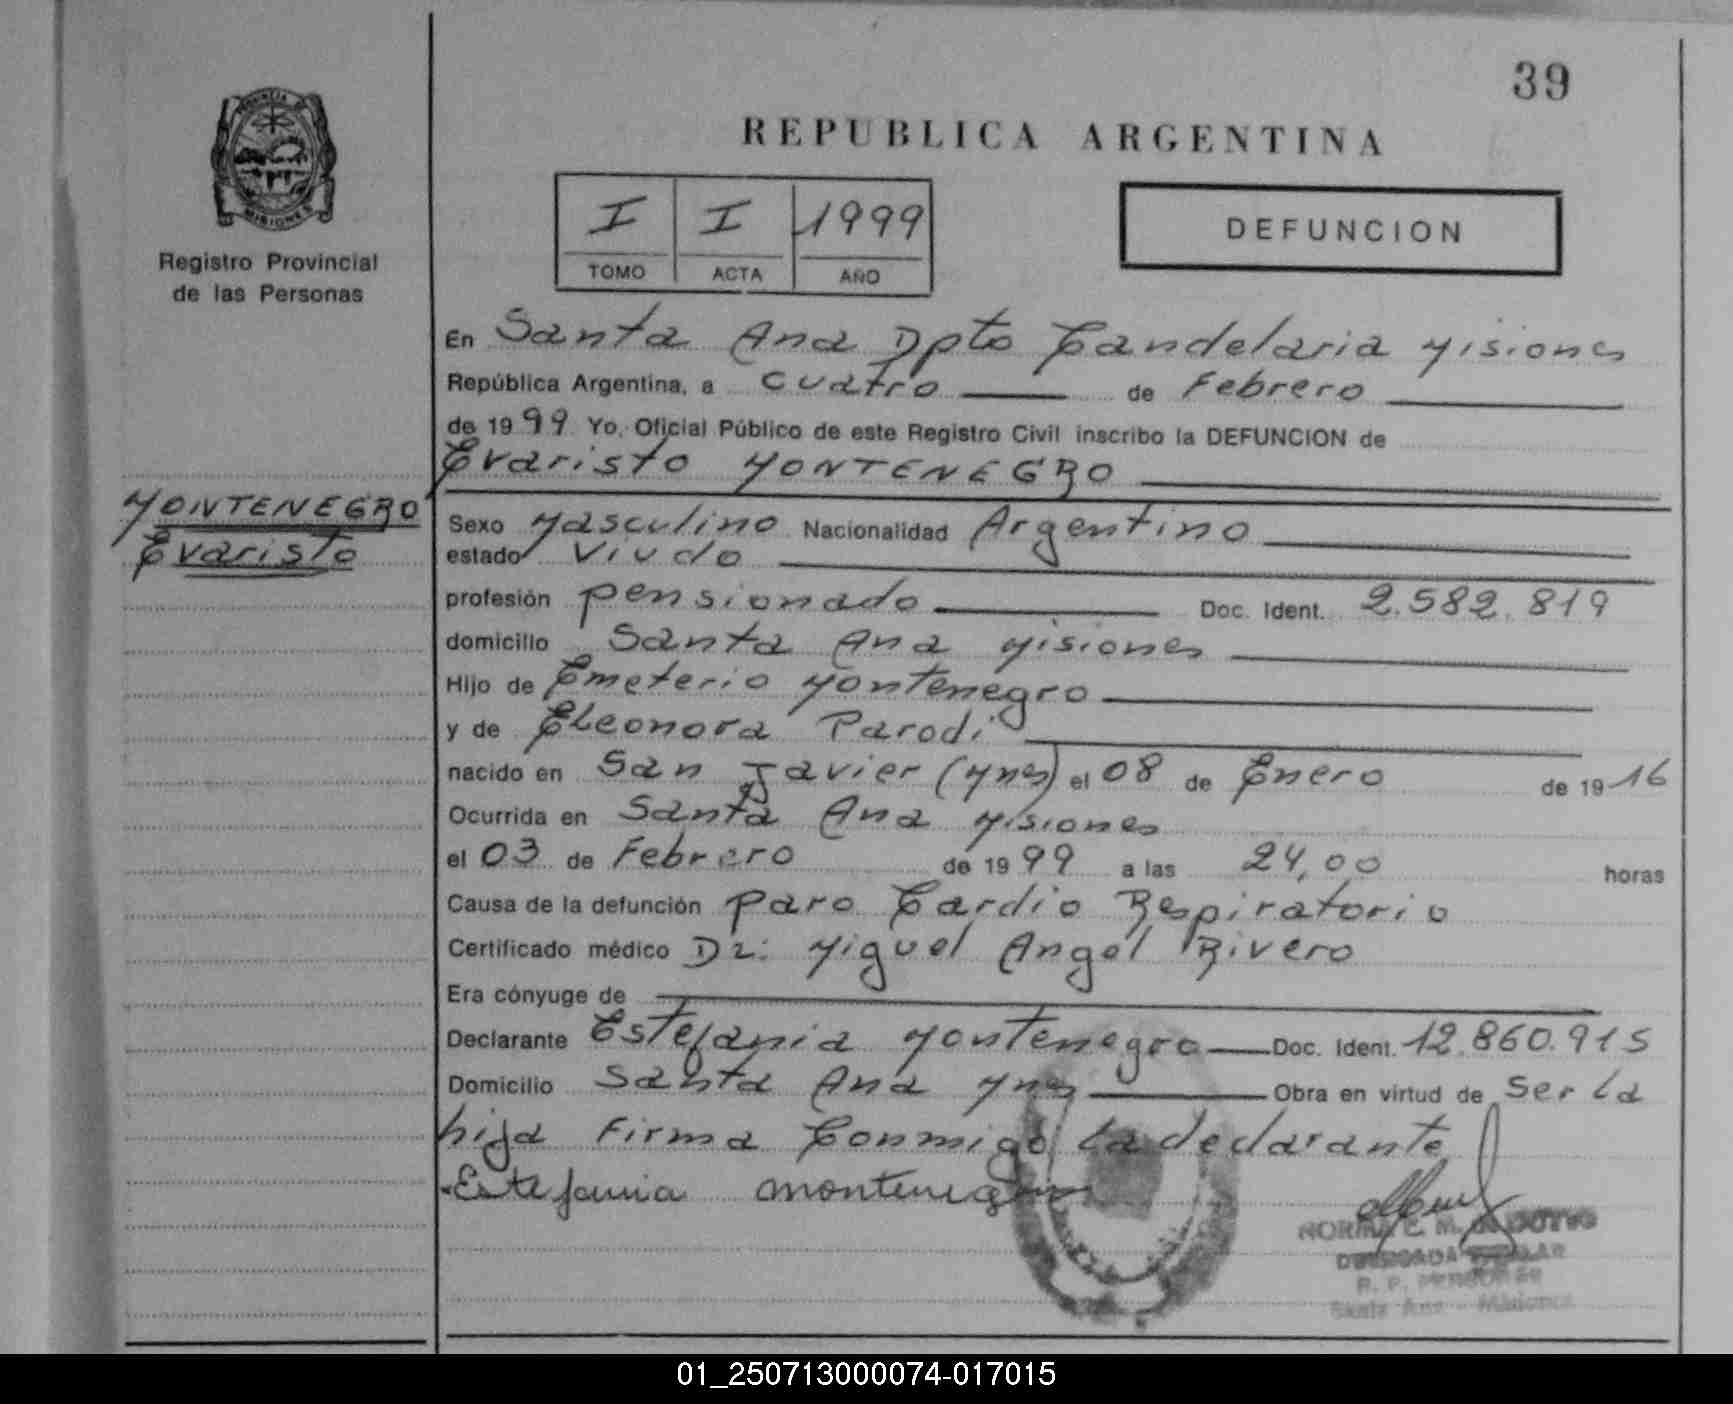 39
REPUBLICA ARGENTINA
PROVINCIA DE
MISIONES
Registro Provincial
de las Personas
I I 1999
TOMO ACTA AÑO
DEFUNCION
En Santa Ana Dpto Candelaria Misiones
República Argentina, a cuatro de Febrero
de 1999 Yo, Oficial Público de este Registro Civil inscribo la DEFUNCION de
Evaristo MONTENEGRO
MONTENEGRO
Evaristo
Sexo Masculino Nacionalidad Argentino
estado Viudo
profesión pensionado Doc. Ident. 2.582.819
domicilio Santa Ana Misiones
Hijo de Emeterio Montenegro
y de Eleonora Parodi
nacido en San Javier (Mnes) el 08 de Enero de 1916
Ocurrida en Santa Ana Misiones
el 03 de Febrero de 1999 a las 24,00 horas
Causa de la defunción Paro Cardio Respiratorio
Certificado médico Dr: Miguel Angel Rivero
Era cónyuge de
Declarante Estefania Montenegro Doc. Ident. 12.860.915
Domicilio Santa Ana Mnes Obra en virtud de Ser la
hija Firma Conmigo la declarante
Estefania montenegro
NORMA E. M.
R. P.
Santa Ana - Misiones
01_250713000074-017015